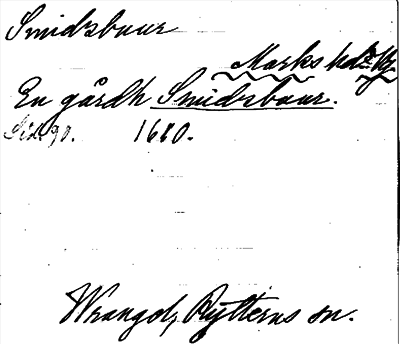 Smidsbuur
Marks hd
En gårdh Smidsbuur.
Sid. 90. 1680.
Wrangel, Rytterns sn.